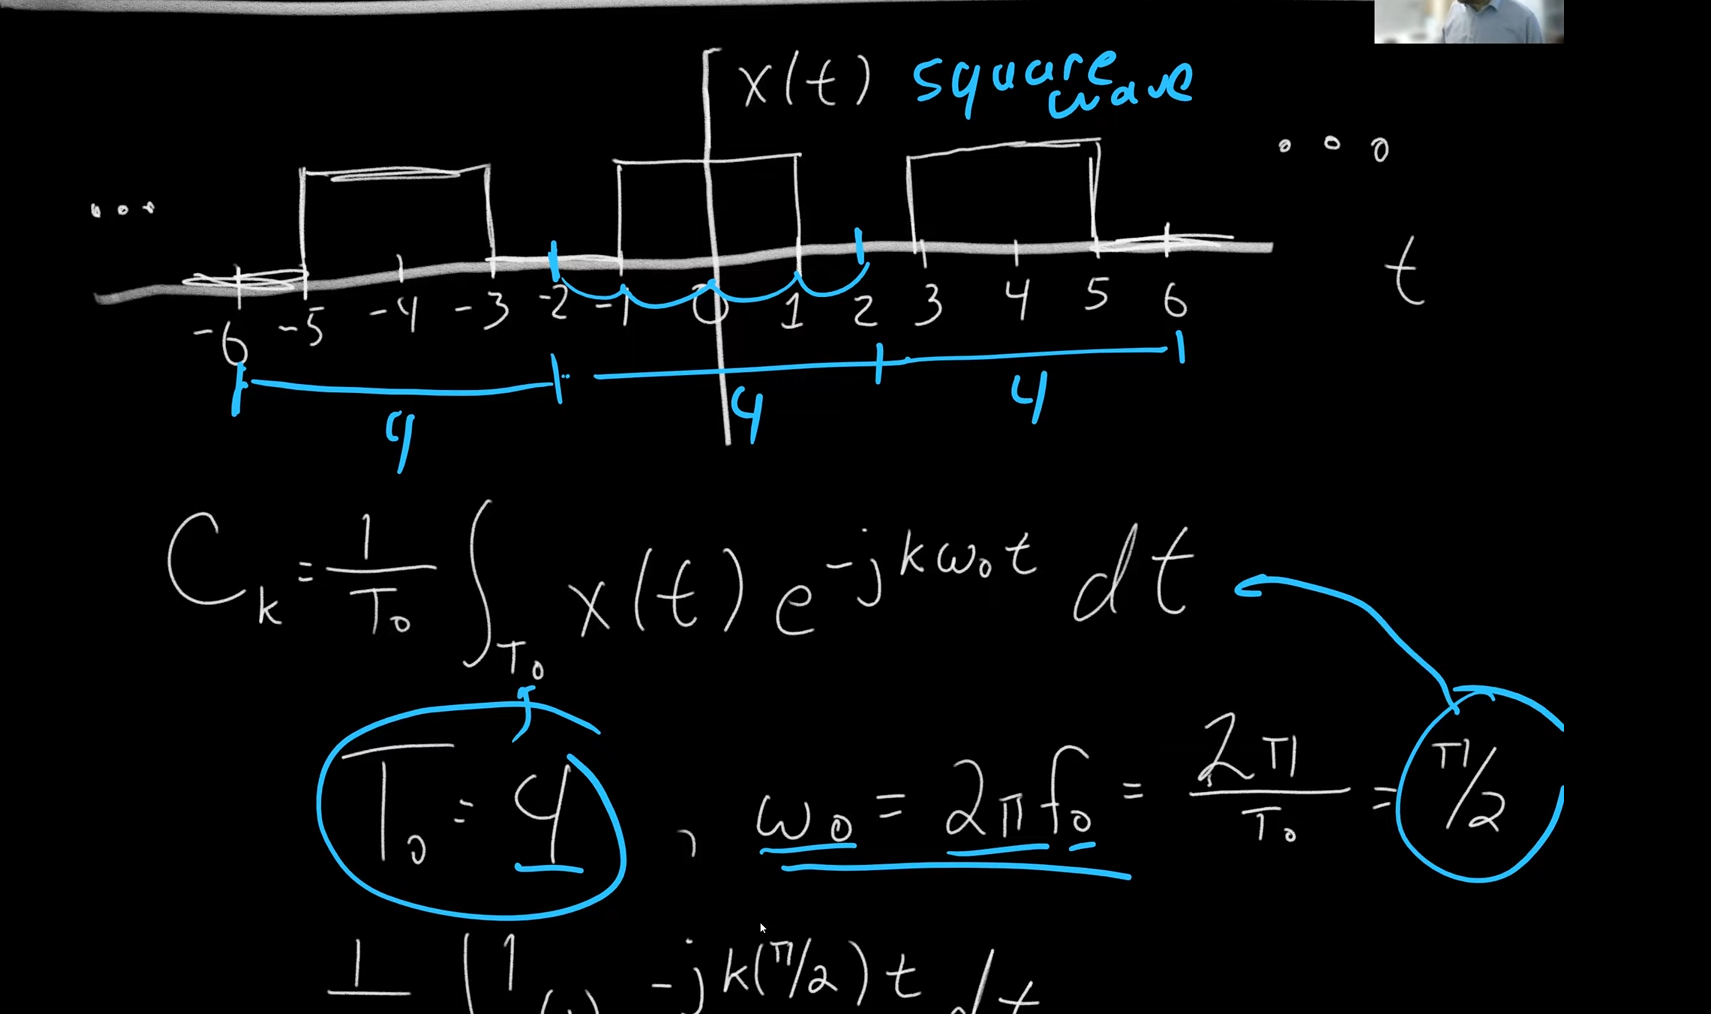 x(t) square wave
... ...
-6 -5 -4 -3 -2 -1 0 1 2 3 4 5 6 t
4 4 4
C_k = 1/T_0 ∫_{T_0} x(t) e^{-jkω_0t} dt
T_0 = 4 , ω_0 = 2πf_0 = 2π/T_0 = π/2
1 1 -jk(π/2)t dt